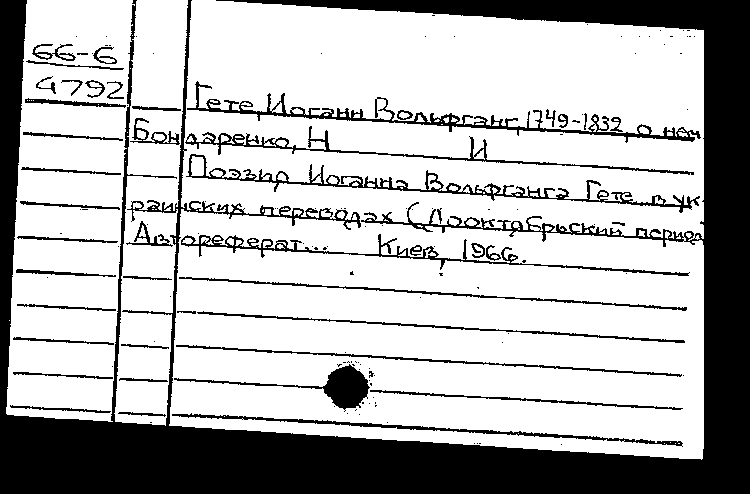 66-6
4792
Гете, Иоганн Вольфганг, 1749-1832, о нем
Бондаренко, Н И
Поэзия Иоганна Вольфганга Гете в ук-
раинских переводах (Дооктябрьский период
Автореферат... Киев, 1966.